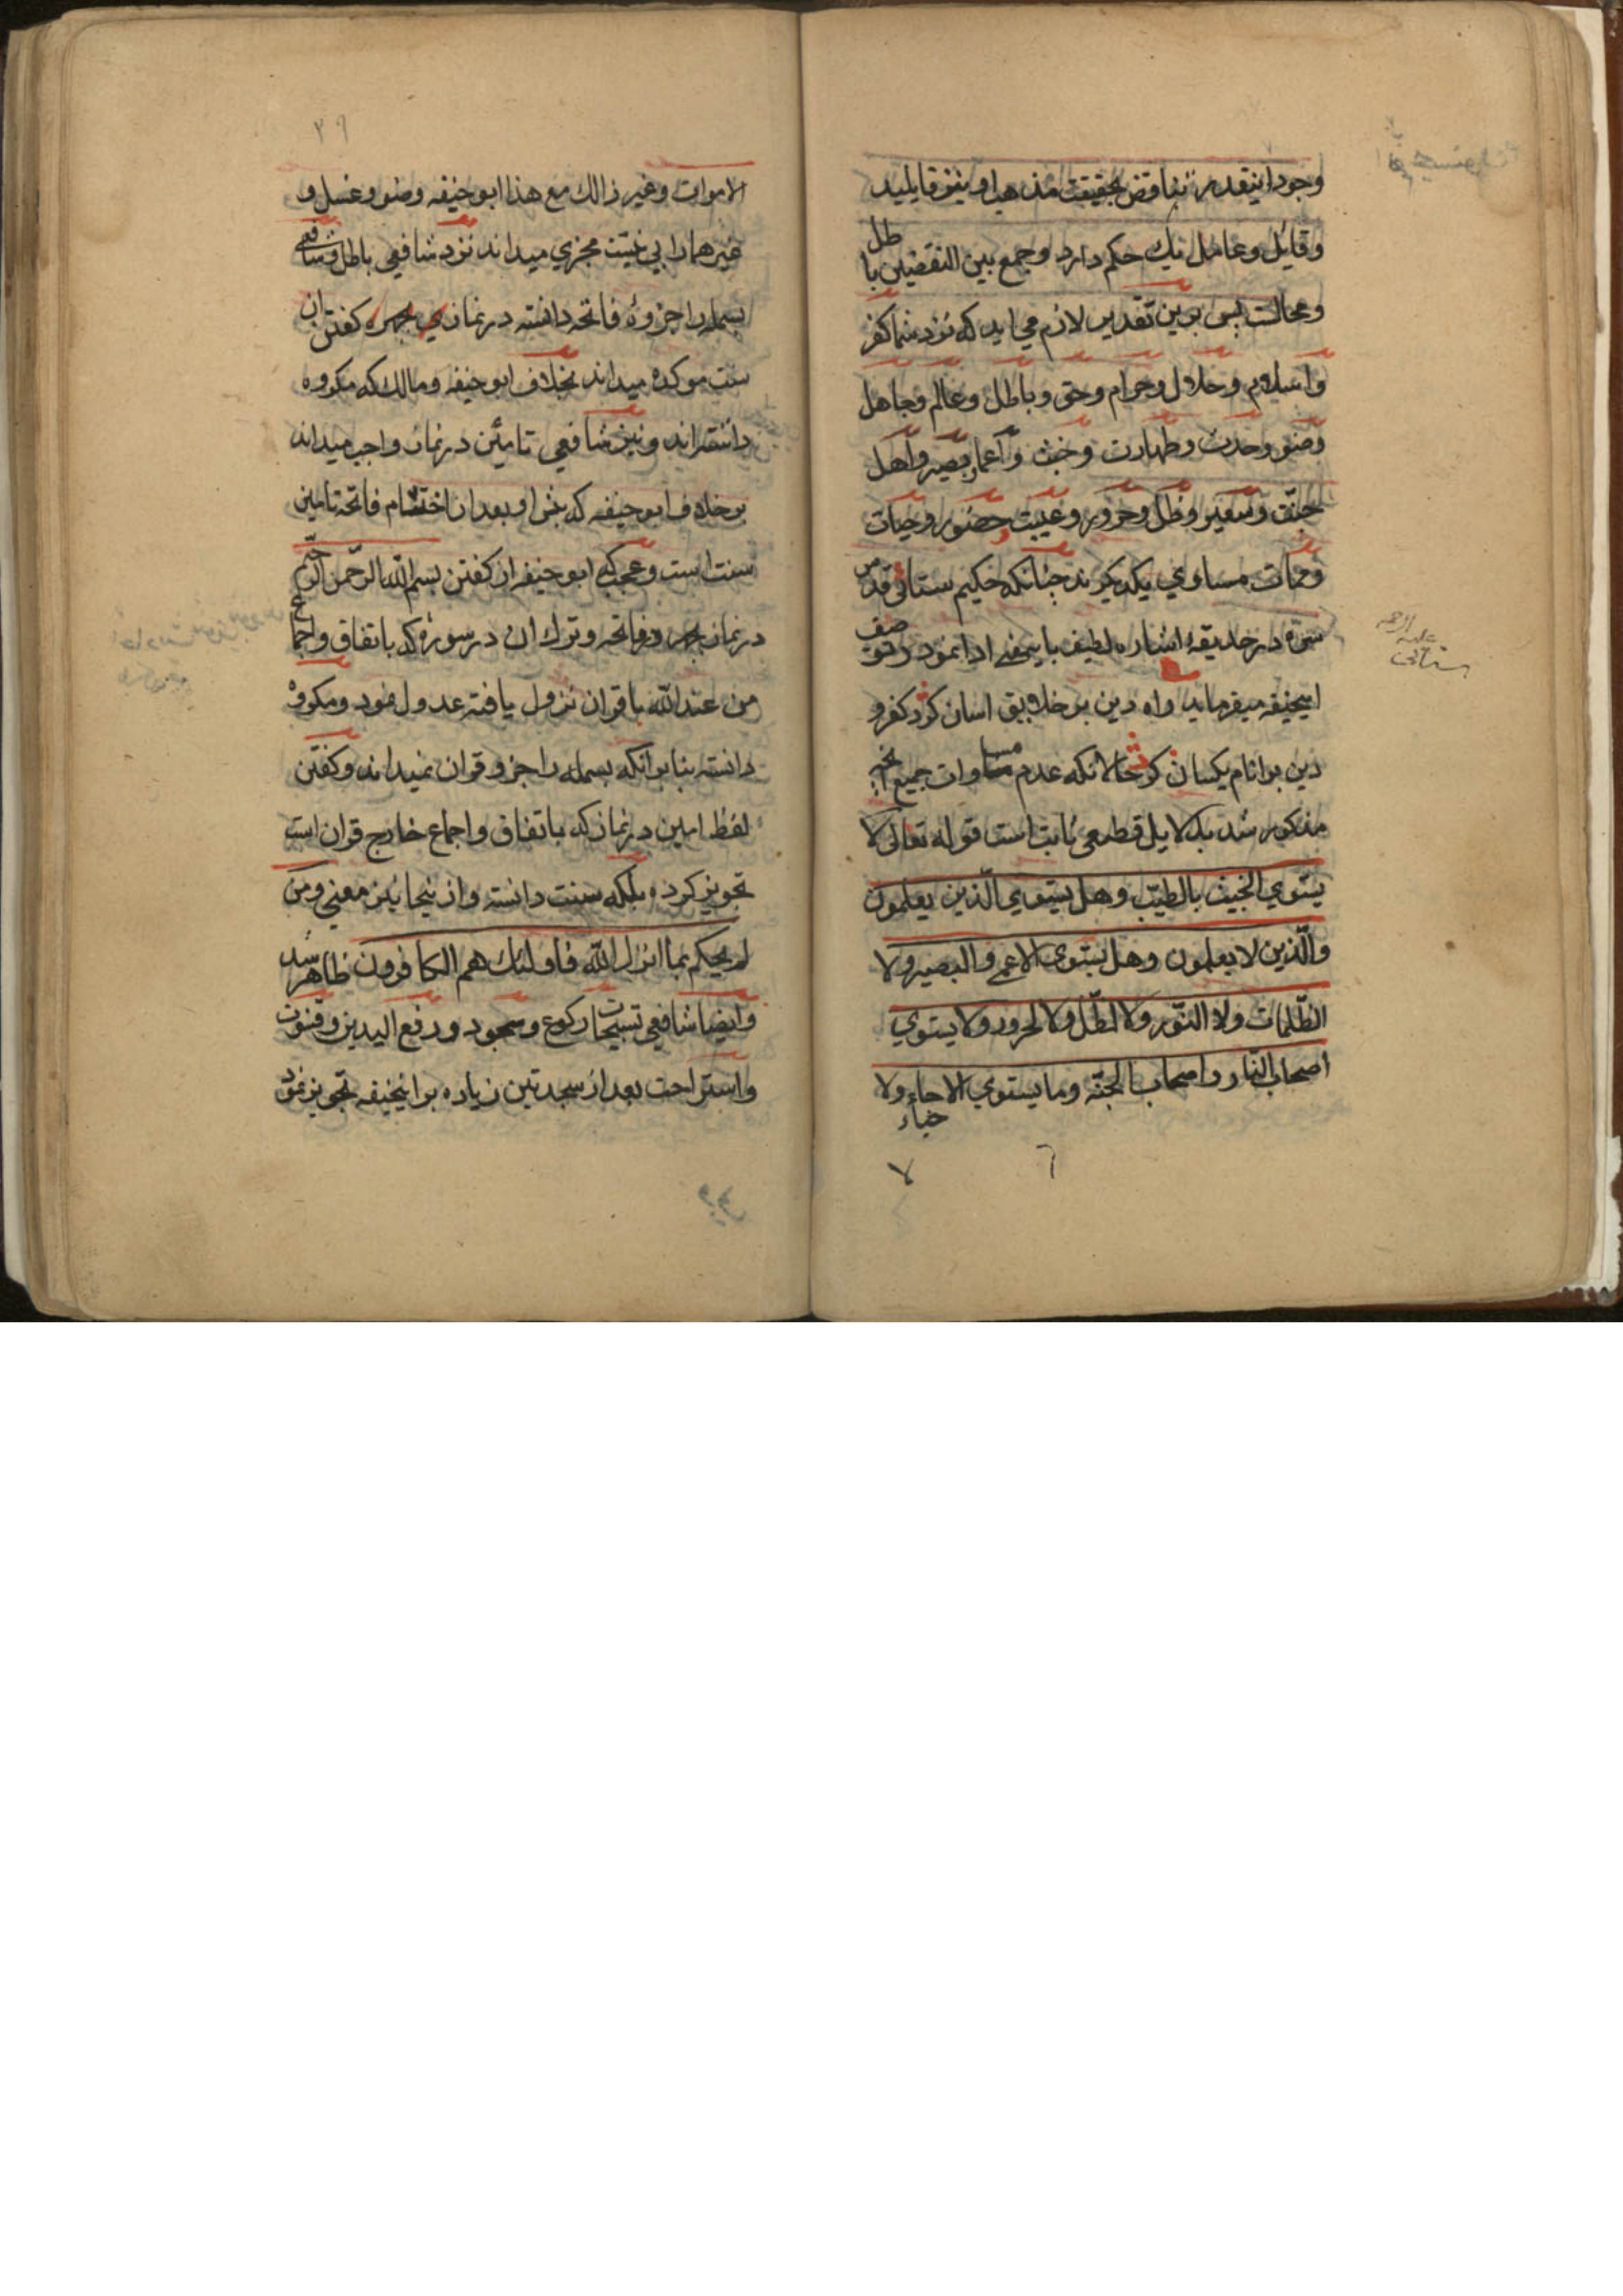 وجود اینقدر تناقض بحقیقت مذهب او نیز قایلید
وقائل وعامل نیك حکم دارد وجمع بین النقضین باطل
ومحالست پس برین تقدیر لازم می اید که نزد شما کفر
واسلام وحلال وحرام وحق وباطل وعالم وجاهل
وضو وحدث وطهارت وخبث واعما وبصیر واهل
جنّت وسعیر وظل وحرور وغیبت وحضور وحیات
وممات مساوي یکدیکرند چنانکه حکیم سنائی قدس
سره در حدیقهٔ اشاره لطیف باینمعنی ادا نمود در حق
ابیحنیفه میفرماید واه دین بر خلایق اسان کرد کفر و
دین بر انام یکسان کرد حالانکه عدم مساوات جمیع انچه
مذکور شد بدلایل قطعی ثابت است قوله تعالی لا
یستوي الخبیث بالطیّب وهل یستوي الّذین یعلمون
والّذین لا یعلمون وهل یستوی الاعمی والبصیر ولا
الظّلمات ولا النّور ولا الظّل ولا الحرور ولا یستوي
اصحاب النّار واصحاب الجنّة وما یستوي الاحیاء ولا
علیه الرحمه
سنائی
۲۹
الاموات وغیر ذالك مع هذا ابو حنیفه وضو وغسل و
غیرهما را بی نیّت مجزي میداند نزد شافعی باطل وشافعی
بسمله را جزؤ فاتحه دانسته در نماز بجهر کفتن ان
سنت موکده میداند بخلاف ابو حنیفه ومالك که مکروه
دانسته اند ونیز شافعی تامین در نماز واجب میداند
بر خلاف ابو حنیفه که پیش او بعد از اختتام فاتحه تامین
سنت است وعجب که ابو حنیفه از کفتن بسم الله الرّحمن الرّحیم
در نماز بجهر در فاتحه وترك ان در سوره که باتفاق واجماع
من عند الله با قران نزول یافته عدول نمود ومکروه
دانسته بنا برانکه بسمله را جزو قران نمیداند وکفتن
لفظ امین در نماز که باتفاق واجماع خارج قران است
تجویز کرده بلکه سنت دانسته واز نیجا این معنی ومن
لم یحکم بما انزل الله فاولئك هم الکافرون ظاهر شد
وایضا شافعی تسبیحات رکوع وسجود ورفع الیدین وقنوت
واستراحت بعد از سجدتین زیاده بر ابیحنیفه تجویز نمود